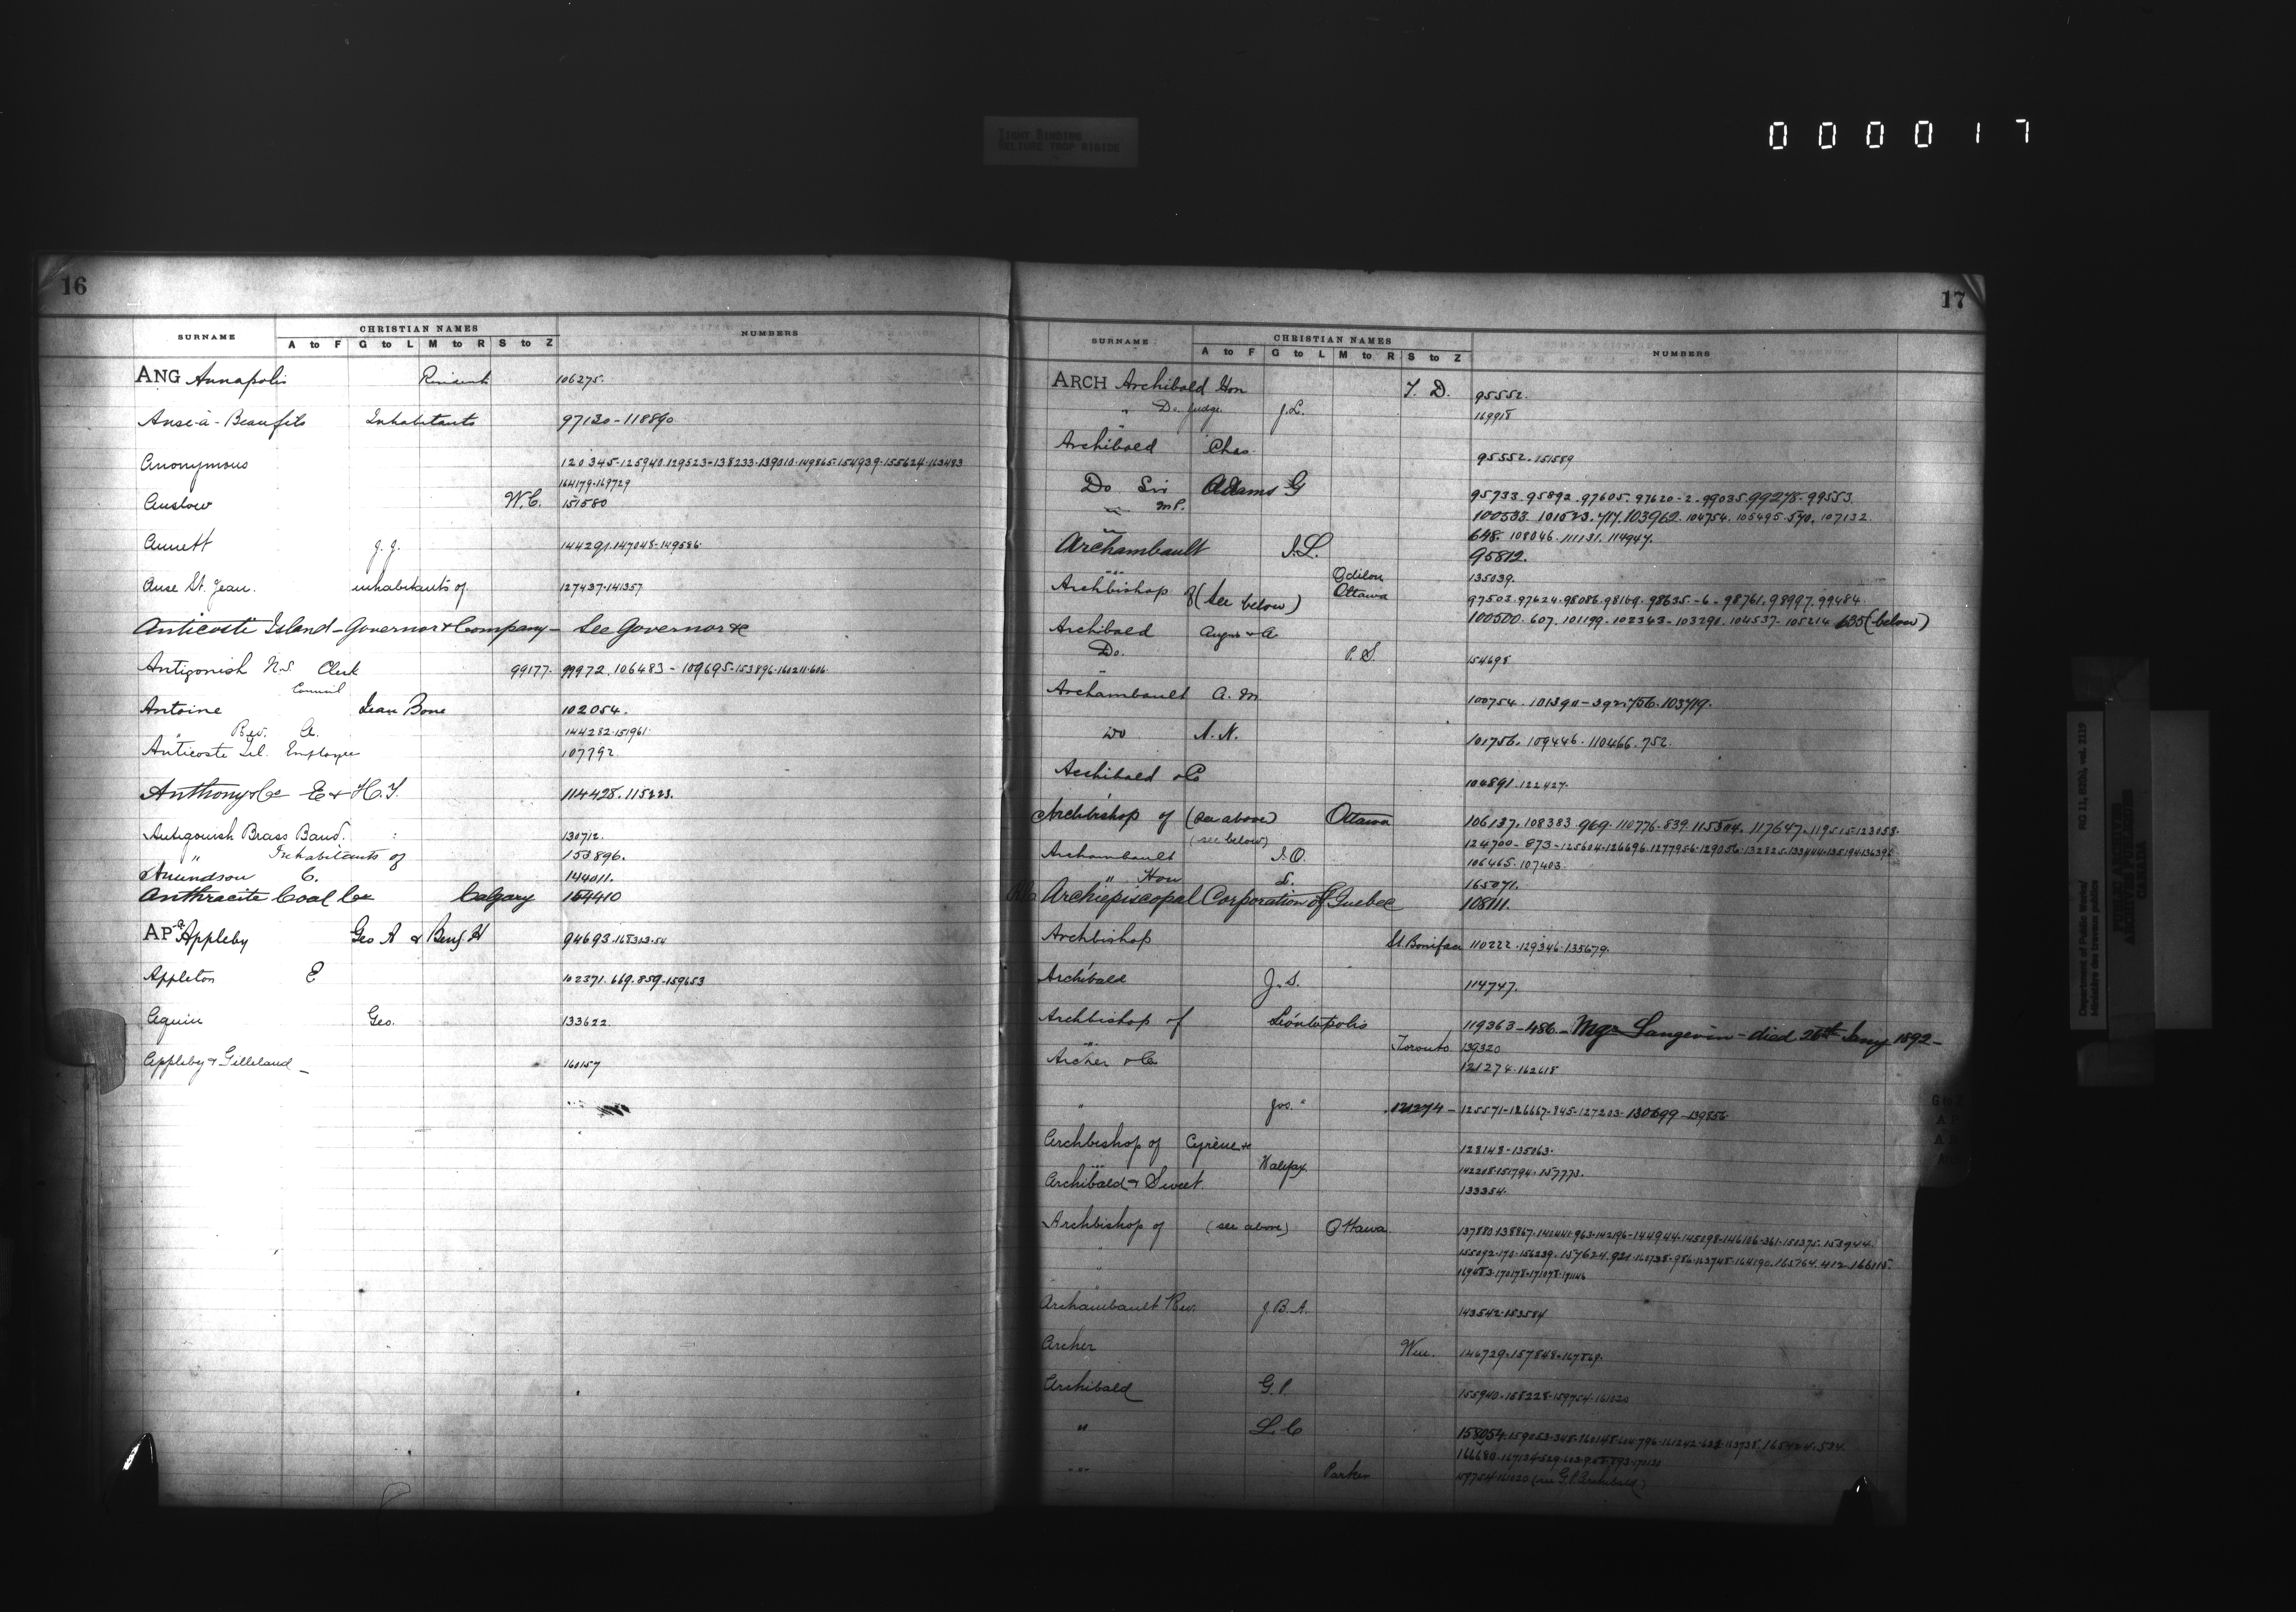 TIGHT BINDING
RELIURE TROP RIGIDE
0 0 0 0 0 1 7
16
SURNAME CHRISTIAN NAMES NUMBERS
A to F G to L M to R S to Z
ANG Annapolis 106275.
Anse-à-Beaufils Inhabitants 97130-118890
Anonymous 120345-125940.129523-138233.139010.149865.154939.155624.163483
164179.169729
Anslow W.C. 151580
Annett J. J. 144291.147048-149586.
Anse St. Jean. inhabitants of 127437.141357
Anticoste Island-Governor & Company- See Governor &c
Antigonish N.S. Clerk 99177. 99972.106483-109695-153896.160211.606.
Council
Antoine Jean Bone 102054.
Rev. A. 144282.151961.
Anticoste Isl. Employee 107792.
Anthony & Co E & H.T. 114428.115223.
Antigonish Brass Band. 130712.
" Inhabitants of 153896.
Amundson C. 144011.
Anthracite Coal Co Calgary 154410
AP Appleby Geo A & Benj H 94693.168323.54
Appleton E 102371.669.859-159653
Aquin Geo. 133622
Appleby & Gilleland- 160157
17
SURNAME CHRISTIAN NAMES NUMBERS
A to F G to L M to R S to Z
ARCH Archibald Hon T. D. 95552.
" Do. Judge J.L. 169918
Archibald Chas. 95552.151589
Do Sir Adams G 95733.95892.97605.97620-2-99035.99278-99553.
M.P. 100533.101523.717.103962.104754.105495.570.107132.
648.108046.111131.114947.
Archambault J.L. 95812.
Odilon 135039.
Archbishop of (See below) Ottawa 97503.97624.98086.98169.98635.-6-98761.98997.99484.
100500.607.101199.102343-103290.104537-105214.635 (below)
Archibald Angus & A.
Do. P. S. 154698
Archambault A. M. 100754.101390-392.756.103719.
Do N. N. 101756.109446.110466.752.
Archibald & Co 104891.122427.
Archbishop of (See above) Ottawa 106137.108383.969.110776.839.115304.117647.119515.123058.
(see below) 124700-873-125604.126696.127795-6-129056.132825.133444.135194.136395
Archambault J.O. 106465.107403.
" Hon L. 165071.
Archiepiscopal Corporation of Quebec 108111.
Archbishop St. Boniface 110222.129346.135679.
Archibald J. S. 114747.
Archbishop of Léontopolis 119363-486-Mgr Langevin-died 26th Jany 1892-
Toronto 139320
Archer & Co 121274.162618
" Jos. " 121274-125571-126667-845-127203.130699-139856.
Archbishop of Cyrène & 128148-135063.
Halifax. 142205.151794.157773.
Archibald & Sweet. 133354.
Archbishop of (see above) Ottawa 137880.138867.140441.963.142196-144944.145098.146106.361.150375.153944.
155092.170.156239.157624.920.160738.986.163748.164190.165764.412.166115.
169683.170178.171078.171146
Archambault Rev. J. B. A. 143542.153584
Archer Wm. 146729.157848.167869.
Archibald G. P. 155940.158228.159754.161020
" L. C 158054.159053.345.160148.604.796.161242.628.163738.165404.534.
Parker 159754.161020 (see G. P. Archibald)
Department of Public Works/
Ministère des travaux publics
RG 11, B2(b), vol. 2119
PUBLIC ARCHIVES
ARCHIVES PUBLIQUES
CANADA